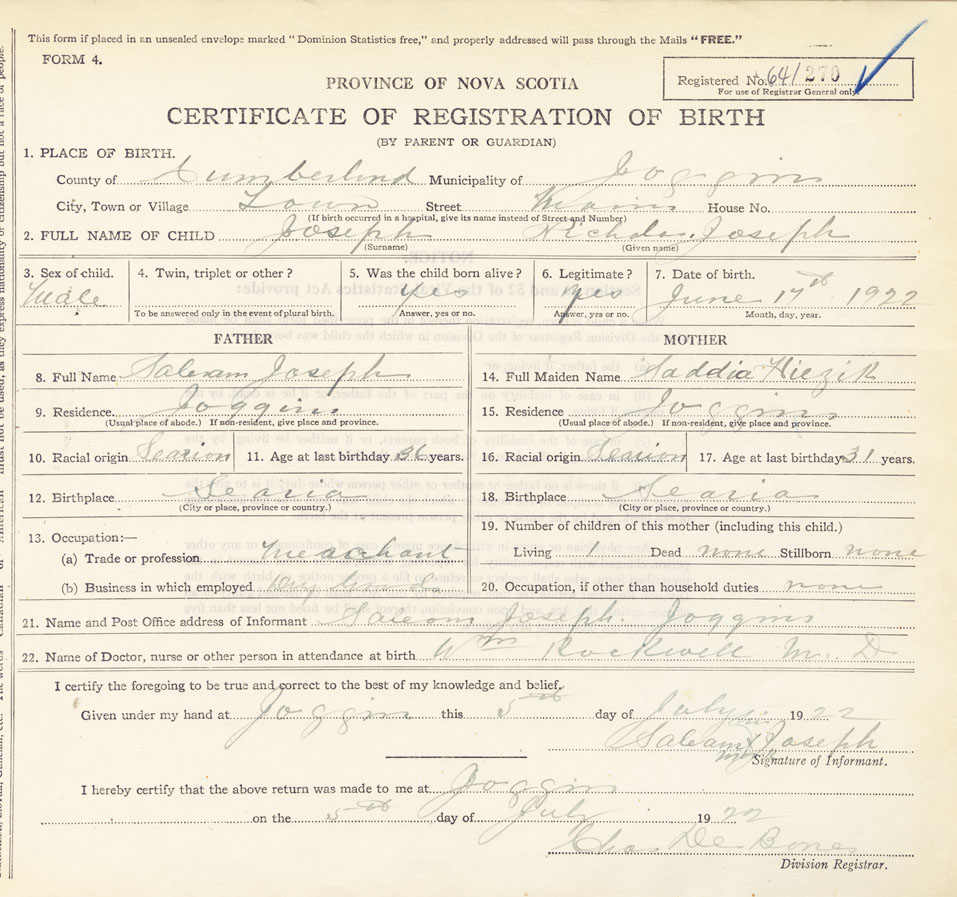 This form if placed in an unsealed envelope marked "Dominion Statistics free," and properly addressed will pass through the Mails "FREE."
FORM 4.
Registered No. 64/270
For use of Registrar General only.
PROVINCE OF NOVA SCOTIA
CERTIFICATE OF REGISTRATION OF BIRTH
(BY PARENT OR GUARDIAN)
1. PLACE OF BIRTH.
County of Cumberlind Municipality of Joggins
City, Town or Village Town Street Main House No.
(If birth occurred in a hospital, give its name instead of Street and Number)
2. FULL NAME OF CHILD Joseph Nicholas Joseph
(Surname) (Given name)
3. Sex of child. 4. Twin, triplet or other? 5. Was the child born alive? 6. Legitimate? 7. Date of birth.
Male Yes yes June 17th 1922
To be answered only in the event of plural birth. Answer, yes or no. Answer, yes or no. Month, day, year.
FATHER MOTHER
8. Full Name Saleam Joseph 14. Full Maiden Name Saddia Hiezik
9. Residence Joggins 15. Residence Joggins
(Usual place of abode.) If non-resident, give place and province. (Usual place of abode.) If non-resident, give place and province.
10. Racial origin Searion 11. Age at last birthday 36 years. 16. Racial origin Searion 17. Age at last birthday 31 years.
12. Birthplace Searia 18. Birthplace Searia
(City or place, province or country.) (City or place, province or country.)
13. Occupation:— 19. Number of children of this mother (including this child.)
(a) Trade or profession Meachant Living 1 Dead none Stillborn none
(b) Business in which employed Dry 20. Occupation, if other than household duties none
21. Name and Post Office address of Informant Saleom Joseph. Joggins
22. Name of Doctor, nurse or other person in attendance at birth Wm Rockwell M. D
I certify the foregoing to be true and correct to the best of my knowledge and belief.
Given under my hand at Joggins this 5th day of July 1922
his
Saleam X Joseph
mark
Signature of Informant.
I hereby certify that the above return was made to me at Joggins
on the 5th day of July 1922
Chas De Bones
Division Registrar.